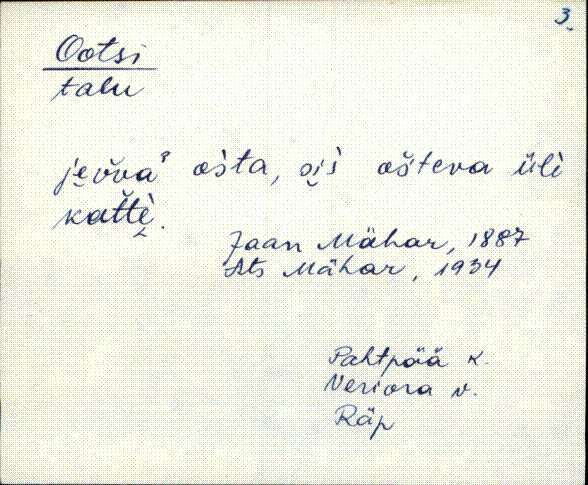 3.
Ootsi
talu
jevva² osta, sis ošteva üli
kattè.
Jaan Mähar, 1887
Ats Mähar, 1934
Pahtpää k.
Veriora v.
Räp